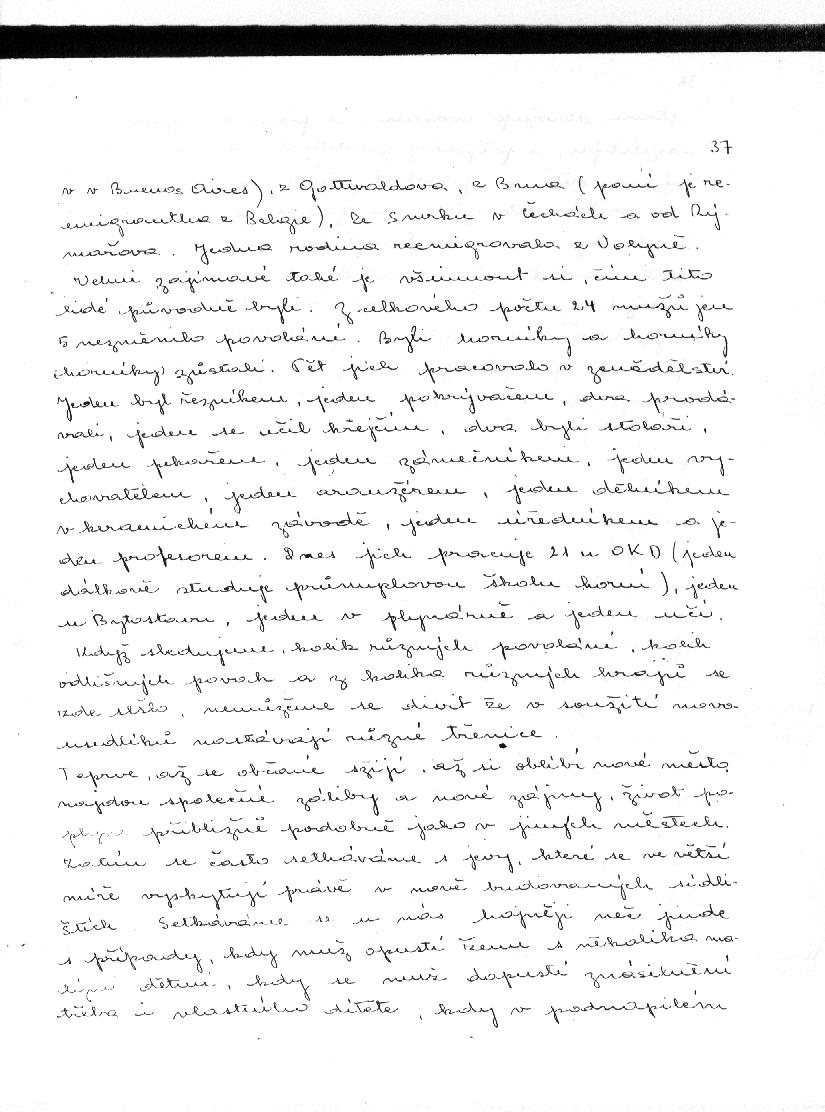 37
v v Buenos Aires), z Gottwaldova, z Brna (paní je re-
emigrantka z Belgie), ze Smrku v Čechách a od Rý-
mařova. Jedna rodina reemigrovala z Volyně.
Velmi zajímavé také je všimnout si, čím tito
lidé původně byli. Z celkového počtu 24 mužů jen
5 nezměnilo povolání. Byli horníky a horníky
(horníky) zůstali. Pět jich pracovalo v zemědělství.
Jeden byl řezníkem, jeden pokrývačem, dva prodá-
vali, jeden se učil krejčím, dva byli stoláři,
jeden pekařem, jeden zámečníkem, jeden vy-
chovatelem, jeden aranžérem, jeden dělníkem
v keramickém závodě, jeden úředníkem a je-
den profesorem. Dnes jich pracuje 21 u OKD (jeden
dálkově studuje průmyslovou školu horní), jeden
u Bytostavu, jeden v plynárně a jeden učí.
Když sledujeme, kolik různých povolání, kolik
odlišných povah a z kolika různých krajů se
zde sešlo, nemůžeme se divit že v soužití novo-
usedlíků nastávají různé třenice.
Teprve, až se občané sžijí, až si oblíbí nové město,
najdou společné záliby a nové zájmy, život po-
plyne přibližně podobně jako v jiných městech.
Zatím se často setkáváme s jevy, které se ve větší
míře vyskytují právě v nově budovaných sídli-
štích. Setkáváme se u nás hojněji než jinde
s případy, kdy muž opustí ženu s několika ma-
lými dětmi, kdy se muž dopustí znásilnění
třeba i vlastního dítěte, kdy v podnapilém